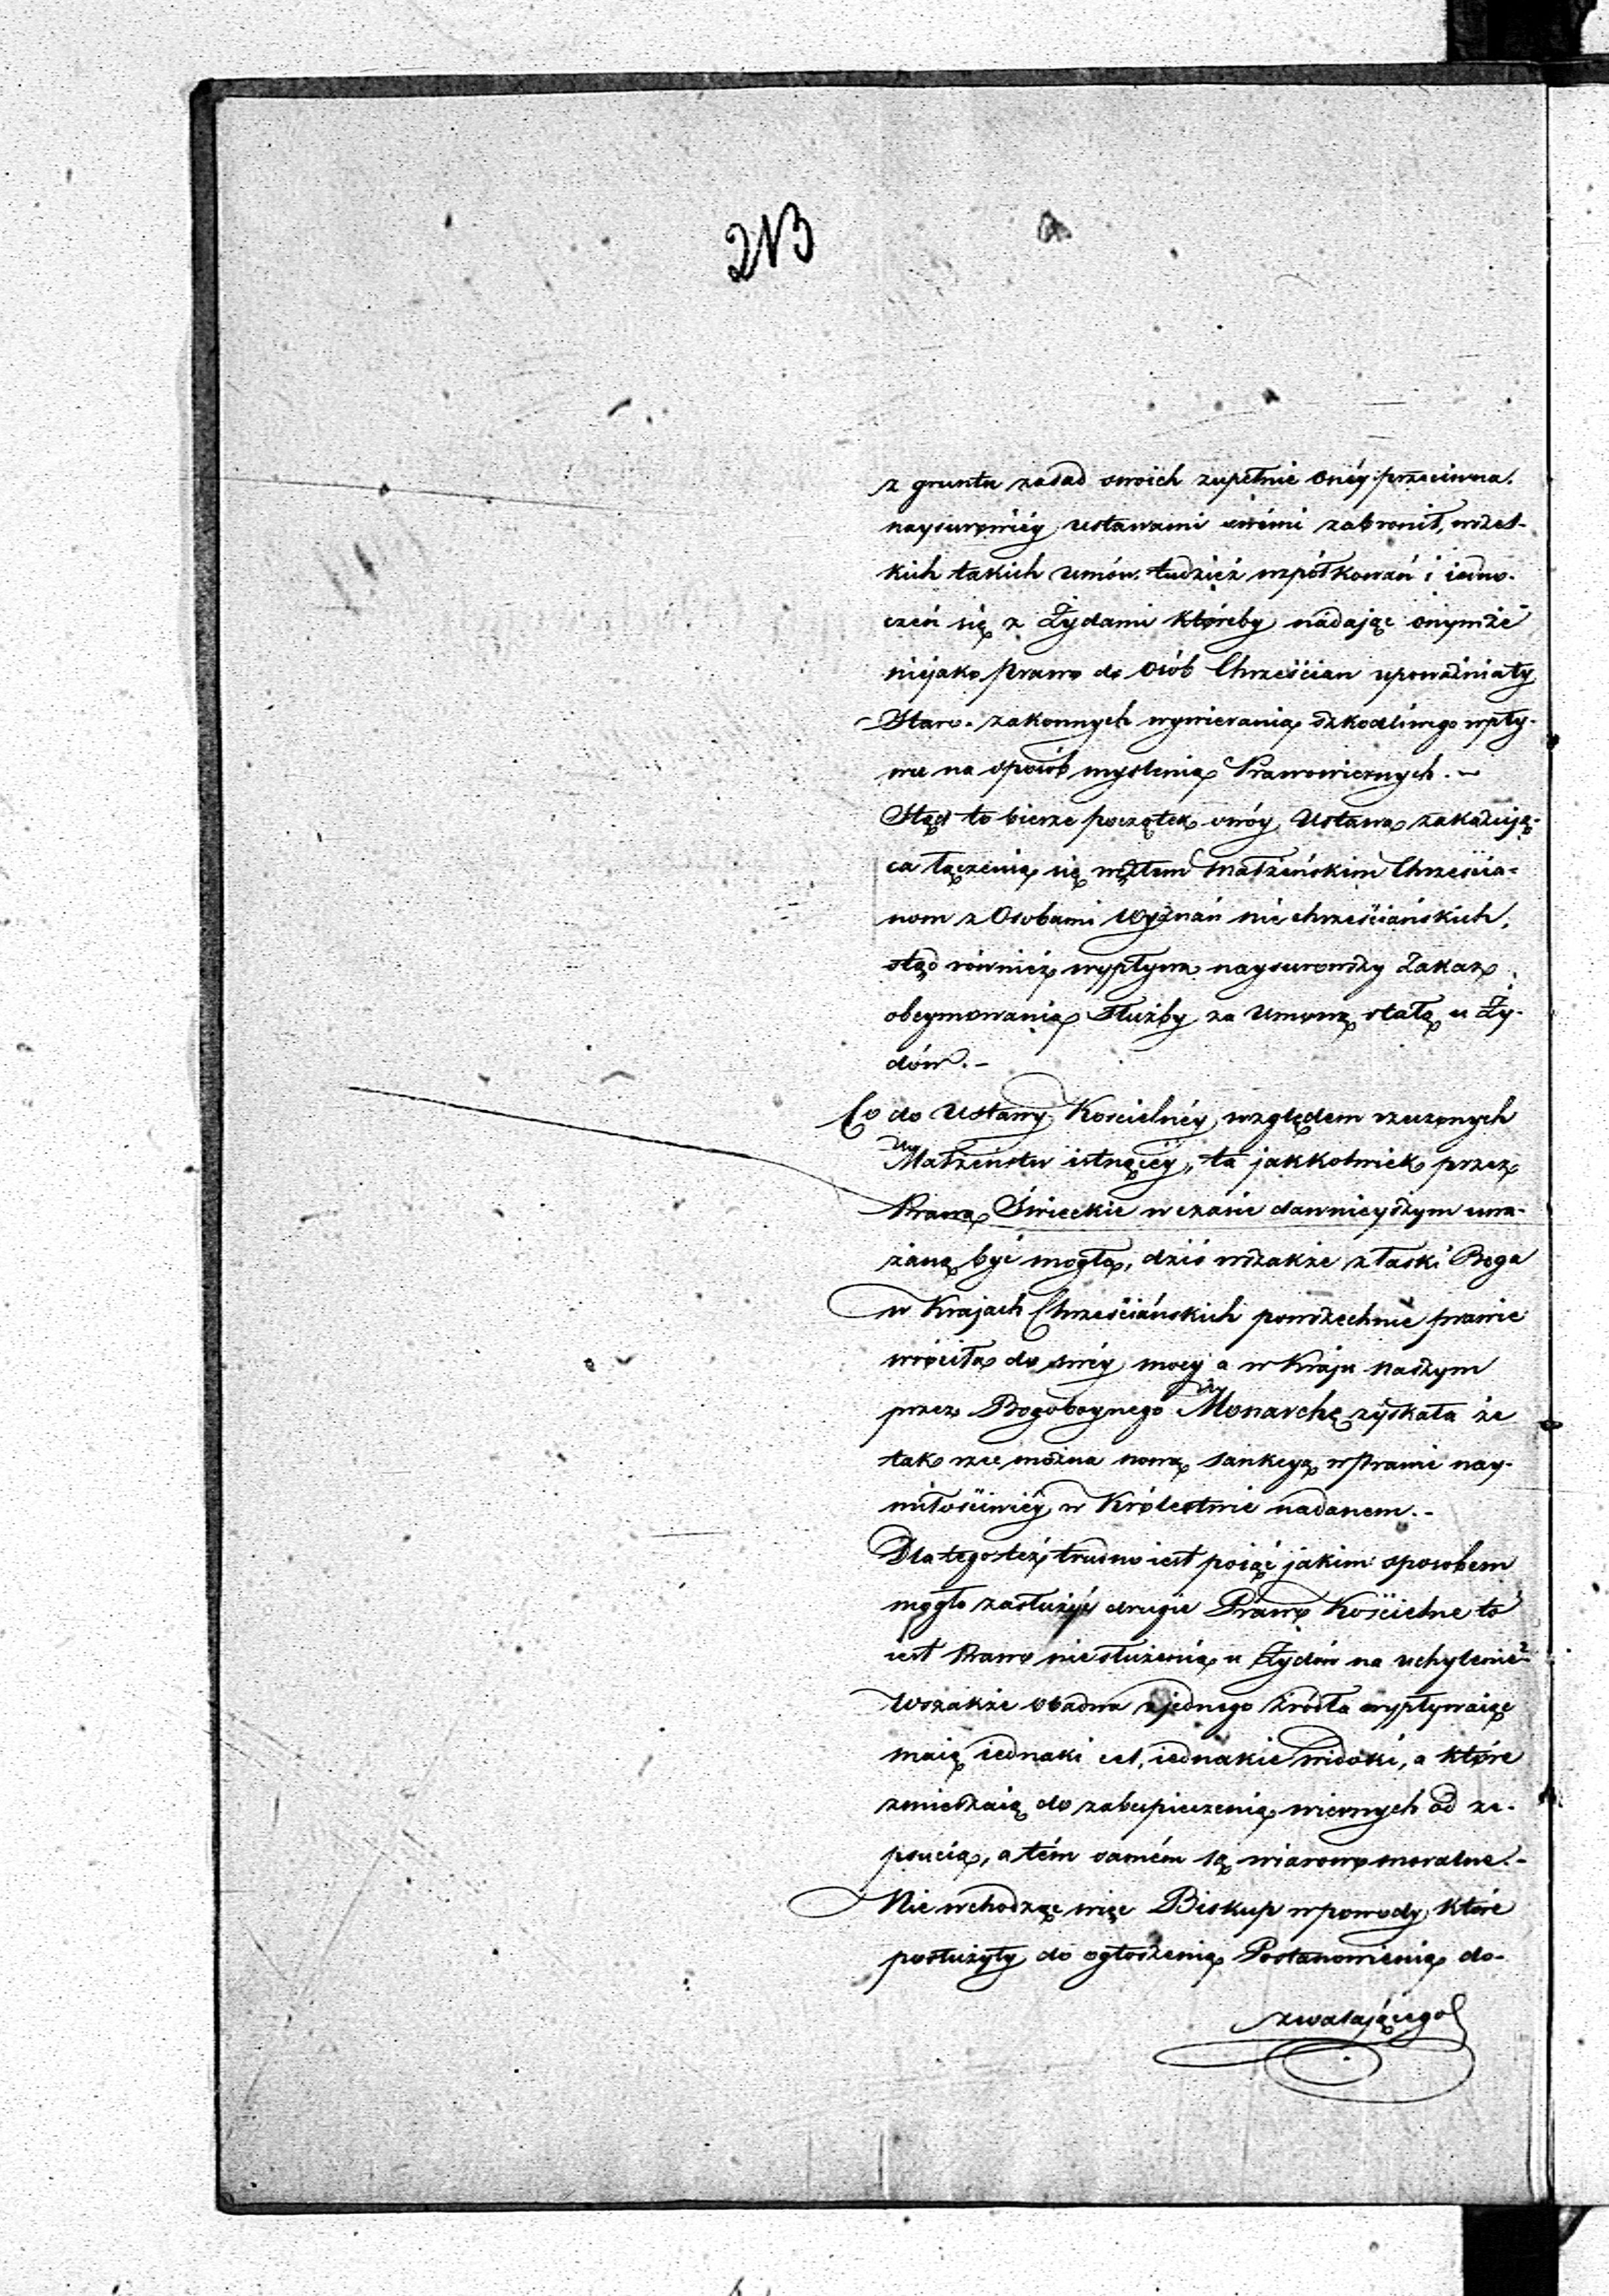 213
z gruntu zasad swoich zupełnie onéy przeciwna.
naysurowiéy ustawami swémi zabronił, wszel-
kich takich umów, tudzież wspólkowań i iedno-
czeń się z Żydami któreby nadając onymże
niejako prawo do Osób Chrześcian upoważniały
Staro-zakonnych wywierania szkodliwego wpły-
wu na sposób myslenia Prawowiernych. –
Stąd to bierze początek swóy Ustawa zakazują-
ca łączenia się węzłem Małżeńskim Chrześcia-
nom z Osobami Wyznań nie chrześciańskich,
stąd również wypływa naysurowszy Zakaz
obeymowania Służby za Umową stałą u Ży-
dów. –
Co do Ustawy Koscielnéy względem rzeczonych
Małżeństw istnącéy, ta jakkolwiek przez
Prawa Świeckie w czasie dawnieyszym uwa-
żaną być mogła, dziś wszakże z łaski Boga
w Krajach Chrześciańskich powszechnie prawie
wróciła do swéy mocy a w Kraju naszym
przez Bogoboynego Monarchę zyskała że
tak rzec można nową Sankcyą w Prawie nay-
miłościwiéy w Królestwie nadanem. –
Dla tego też trudno iest poiąć jakim sposobem
mogło zasłużyć drugie Prawo Kościelne to
iest Prawo niesłużenia u Żydów na uchylenie
Wszakże obadwa z jednego źródła wypływaiąc
maią iednaki cel, iednakie widoki, a które
zmierzaią do zabespieczenia wiernych od ze-
psucia, a tém samém są wiarowo moralne. –
Nie wchodząc więc Biskup w powody, które
posłużyły do ogłoszenia Postanowienia do-
zwalającego